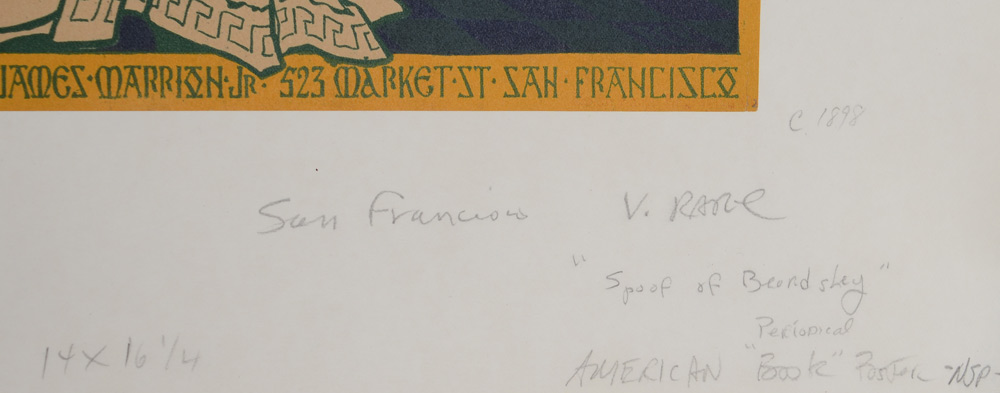 JAMES·MARRION·Jr· 523 MARKET·ST· SAN·FRANCISCO
C. 1898
San Francisco V. RARE
"Spoof of Beardsley"
Periodical
14 X 16 1/4 AMERICAN "Book" Poster -NSP-